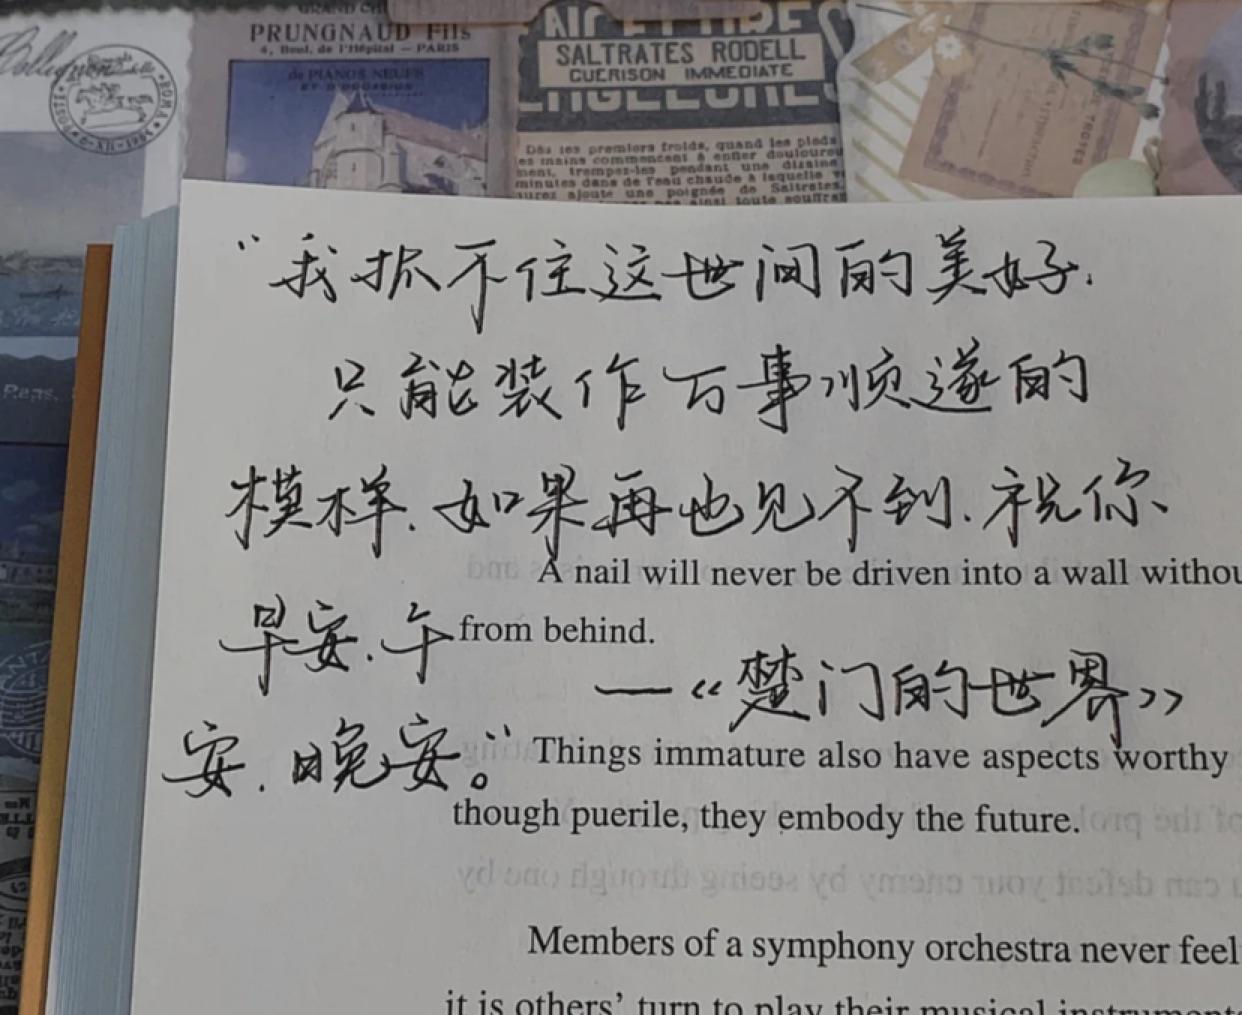 PRUNGNAUD Fils
4, Boul. de l'Hôpital — PARIS
de PIANOS NEUFS
ET D'OCCASION
SALTRATES RODELL
GUERISON IMMEDIATE
ENGELURES
Dès les premiers froids, quand les pieds
les mains commencent à enfler
ment, trempez-les pendant une dizaine
minutes dans de l'eau chaude à laquelle
aurez ajouté une poignée de Saltrates
“我抓不住这世间的美好.
只能装作万事顺遂的
模样.如果再也见不到.祝你
A nail will never be driven into a wall
早安.午
from behind.
—《楚门的世界》
安.晚安。”
Things immature also have aspects worthy
though puerile, they embody the future.
Members of a symphony orchestra never feel
it is others' turn to play their musical